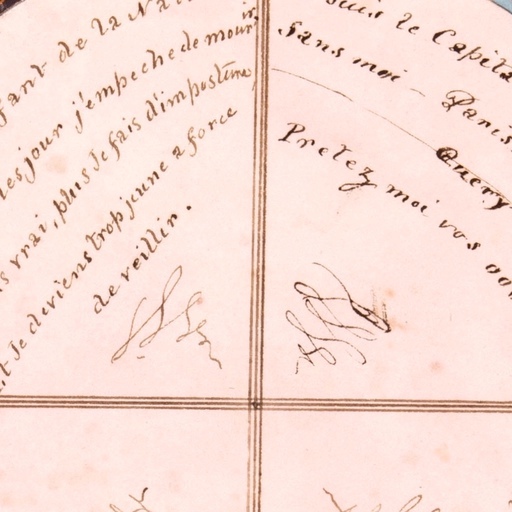 fant de la Na
les jour j'empeche de mourir
s vrai, plus je fais d'imposture
t je deviens trop jeune a force
de veillir.
suis le Capita
Sans moi - Paris
Pretez moi vos